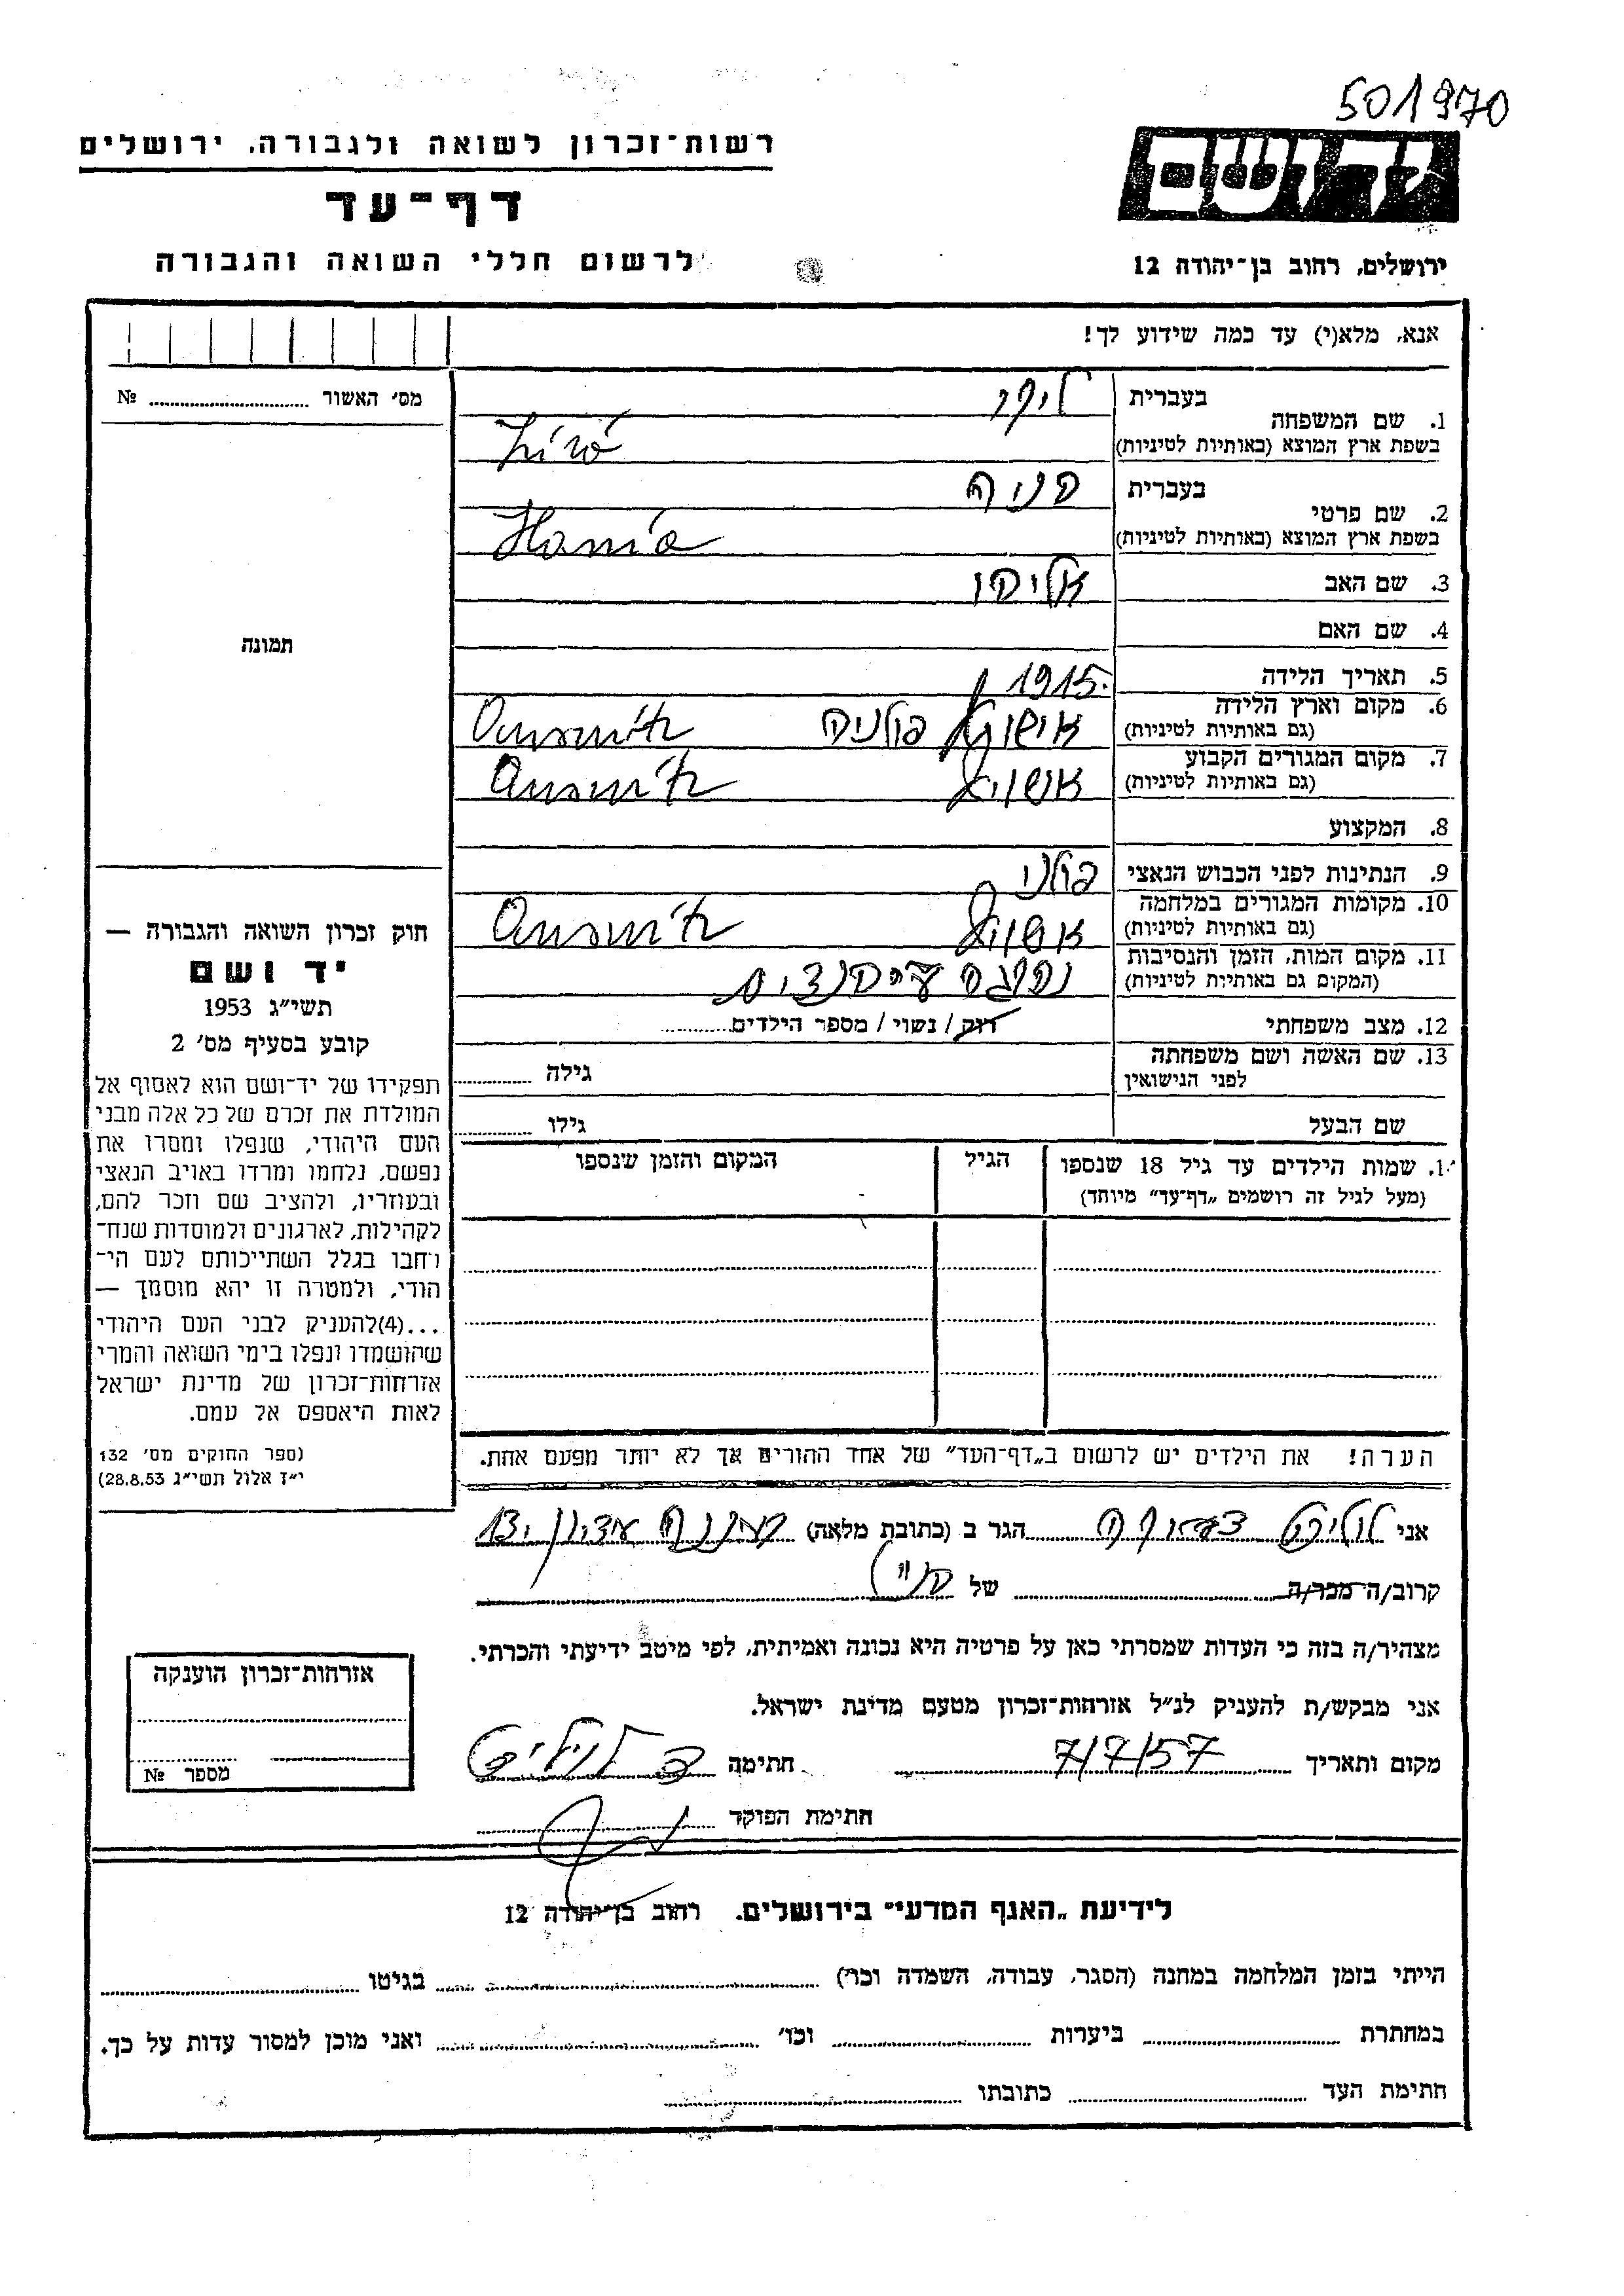 501970
רשות-זכרון לשואה ולגבורה, ירושלים
דף-עד
לרשום חללי השואה והגבורה
יד ושם
ירושלים, רחוב בן-יהודה 12
אנא, מלא(י) עד כמה שידוע לך!
מס׳ האשור № ........
1. שם המשפחה
בעברית
בשפת ארץ המוצא (באותיות לטיניות)
2. שם פרטי
בעברית
בשפת ארץ המוצא (באותיות לטיניות)
Hania
3. שם האב
4. שם האם
5. תאריך הלידה 1915
6. מקום וארץ הלידה
(גם באותיות לטיניות)
פולניה
7. מקום המגורים הקבוע
(גם באותיות לטיניות)
8. המקצוע
9. הנתינות לפני הכבוש הנאצי
פולני
10. מקומות המגורים במלחמה
(גם באותיות לטיניות)
11. מקום המות, הזמן והנסיבות
(המקום גם באותיות לטיניות)
12. מצב משפחתי רווק / נשוי / מספר הילדים........
13. שם האשה ושם משפחתה
לפני הנישואין
גילה ........
שם הבעל גילו ........
1. שמות הילדים עד גיל 18 שנספו
(מעל לגיל זה רושמים „דף-עד״ מיוחד)
הגיל
המקום והזמן שנספו
הערה! את הילדים יש לרשום ב„דף-העד״ של אחד ההורים אך לא יותר מפעם אחת.
תמונה
חוק זכרון השואה והגבורה —
יד ושם
תשי״ג 1953
קובע בסעיף מס׳ 2
תפקידו של יד-ושם הוא לאסוף אל
המולדת את זכרם של כל אלה מבני
העם היהודי, שנפלו ומסרו את
נפשם, נלחמו ומרדו באויב הנאצי
ובעוזריו, ולהציב שם וזכר להם,
לקהילות, לארגונים ולמוסדות שנח-
רחבו בגלל השתייכותם לעם הי-
הודי, ולמטרה זו יהא מוסמך —
...(4)להעניק לבני העם היהודי
שהושמדו ונפלו בימי השואה והמרי
אזרחות-זכרון של מדינת ישראל
לאות היאספם אל עמם.
(ספר החוקים מס׳ 132
י״ז אלול תשי״ג 28.8.53)
אני הגר ב (כתובת מלאה)
קרוב/ה מכר/ה של
מצהיר/ה בזה כי העדות שמסרתי כאן על פרטיה היא נכונה ואמיתית, לפי מיטב ידיעתי והכרתי.
אני מבקש/ת להעניק לנ״ל אזרחות-זכרון מטעם מדינת ישראל.
מקום ותאריך 7/7/57 חתימה
חתימת הפוקד
אזרחות-זכרון הוענקה
מספר №
לידיעת „האגף המדעי״ בירושלים, רחוב בן-יהודה 12
הייתי בזמן המלחמה במחנה (הסגר, עבודה, השמדה וכו׳) ........ בגיטו ........
במחתרת ........ ביערות ........ וכו׳ ........ ואני מוכן למסור עדות על כך.
חתימת העד ........ כתובתו ........